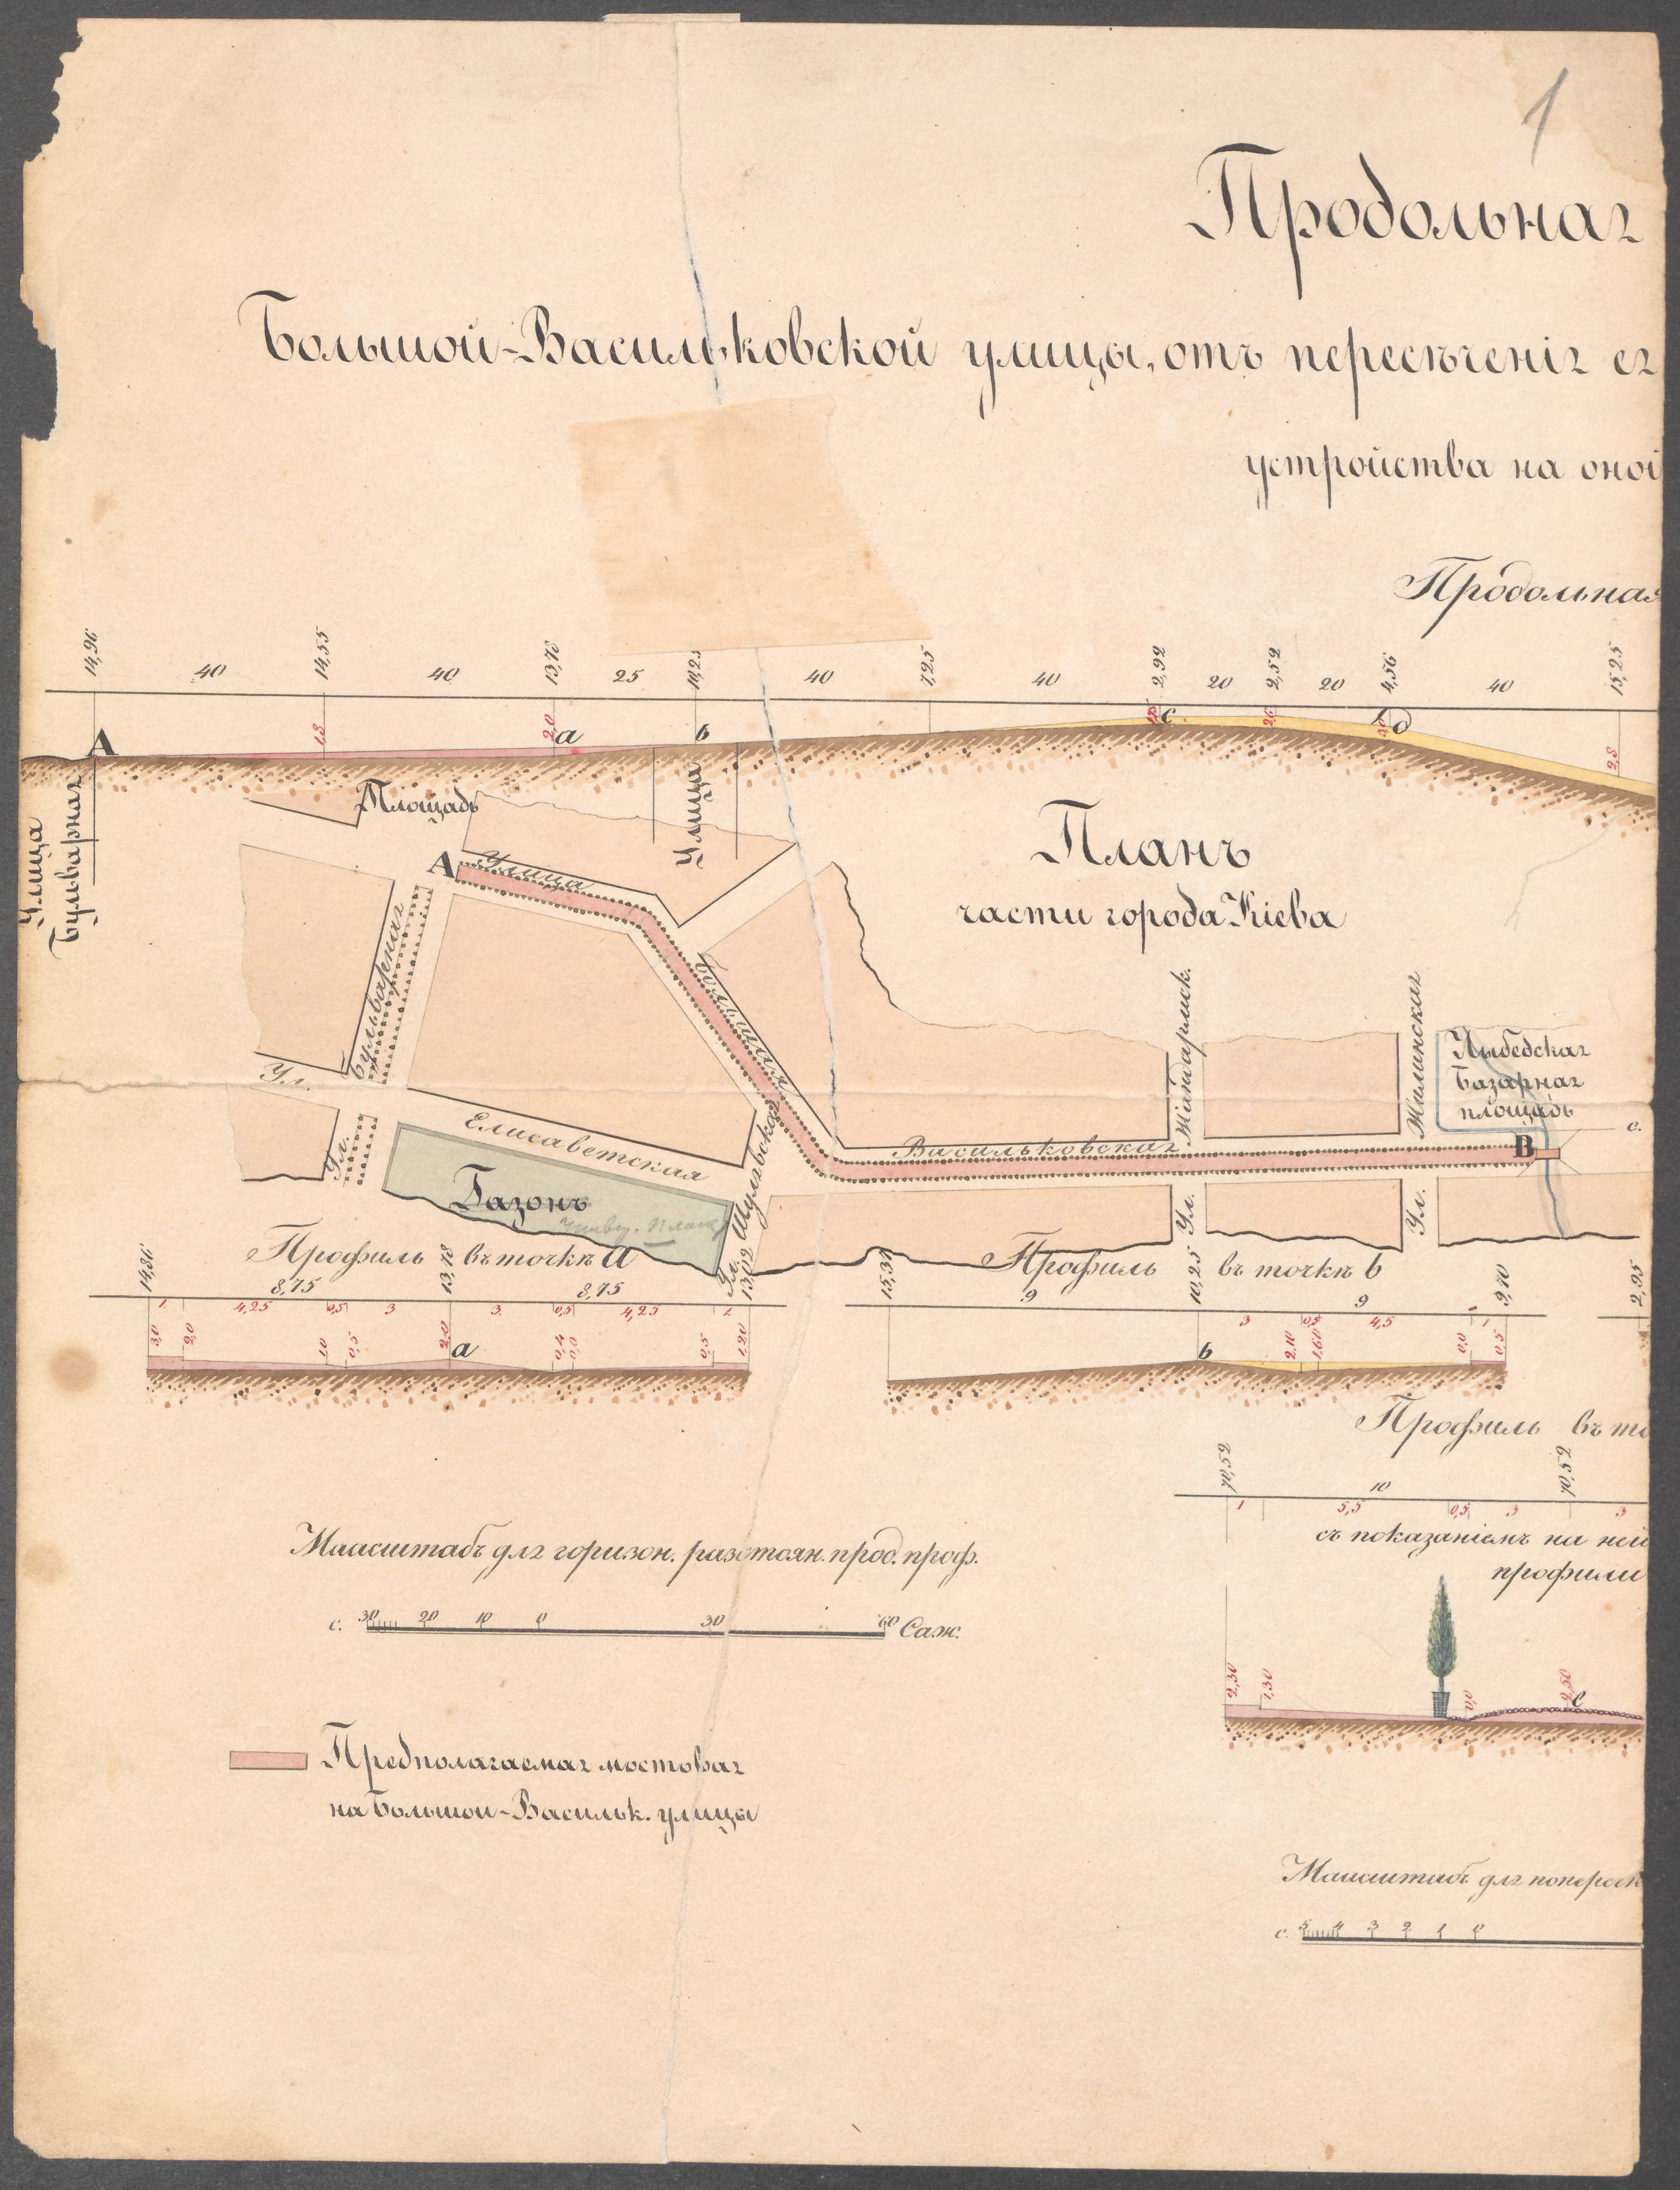 1
Продольная
Большой-Васильковской улицы, отъ пересѣченія ея
устройства на оной
Продольная
14,96 40 14,55 40 13,78 25 10,25 40 7,25 40 2,92 20 2,52 20 4,56 40 15,25
1,3 2,0 2,8
А a b c d
Улица
Бульварная
Площадь
Улица
Планъ
части города Кіева
А
Улица
Бульварная
Большая
Ул.
Елисаветская
Ул.
Газонъ
Шулявская
Ул.
Васильковская
Жандармск.
Ул.
Жилинская
Ул.
Лыбедская
Базарная
площадь
В
с.
Профиль въ точкѣ a
14,86 8,75 13,78 8,75 13,02
1. 4,25 0,5 3 3. 0,5 4,25 1.
3,0 2,0 1,0 0,5 2,0 a 0,4 0,0 0,5 1,20
Профиль въ точкѣ b
9 10,25 9 9,70
3 0,5 4,5 1
b 2,10 1,60 0,0 0,5
2,95
Профиль въ то
70,52 10 70,52
1 5,5 0,5 3 3
съ показаніемъ на ней
профили
2,30 1,30 0,0 2,50 e
Маасштабъ для горизон. разстоян. прод. проф.
с. 30 20 10 0 30 60 Саж.
Предполагаемая мостовая
на Большой-Васильк. улицы
Маасштабъ для попереч
с. 5 4 3 2 1 0